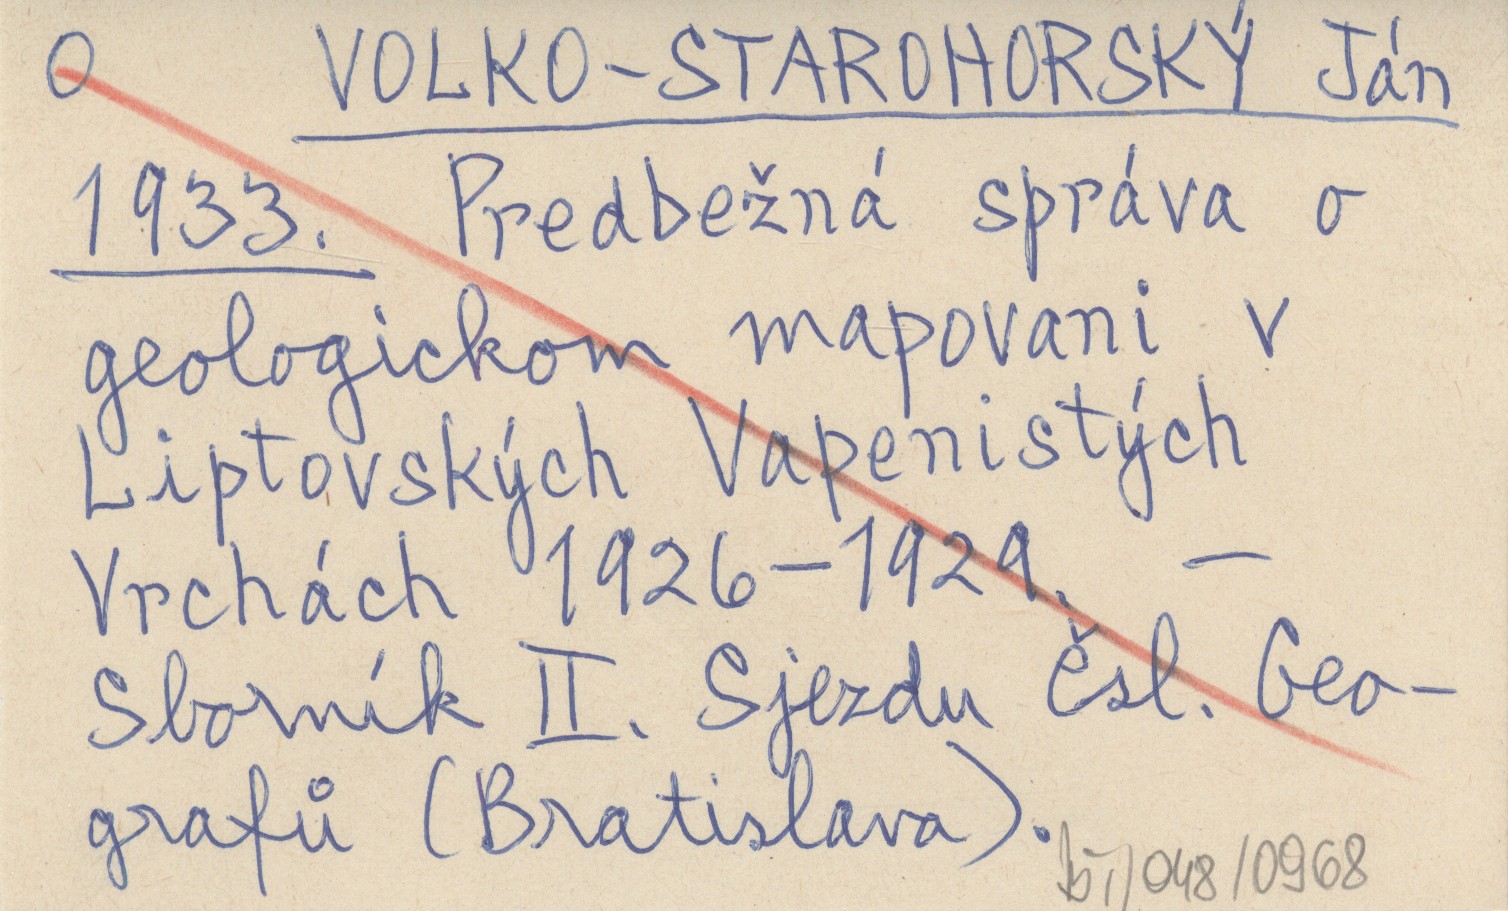 O VOLKO-STAROHORSKÝ Ján
1933. Predbežná správa o
geologickom mapovani v
Liptovských Vapenistých
Vrchách 1926-1929. —
Sborník II. Sjezdu čsl. Geo-
grafů (Bratislava).
048/0968